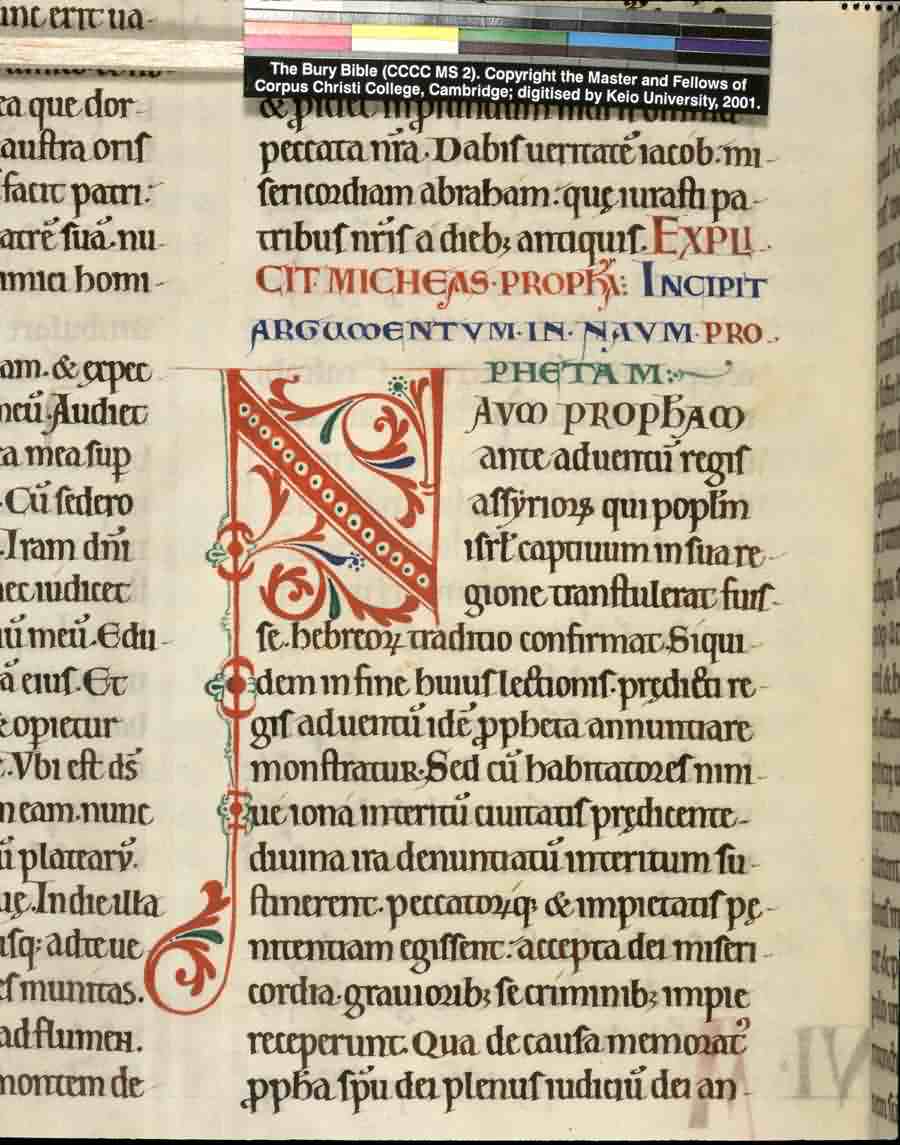 The Bury Bible (CCCC MS 2). Copyright the Master and Fellows of
Corpus Christi College, Cambridge; digitised by Keio University, 2001.
unc erit ua-
ea que dor-
austra oris
facit patri:
atrē suā. nu-
imici homi-
am. & expec
meū. Audiet
ea mea sup
. Cū sedero
. Iram dn̄i
nec iudicet
ū meū. Edu-
ā eius. Et
& opietur
. Vbi est ds̄
n eam. nunc
ū platearū.
uę. In die illa
usq; ad te ue
es munitas.
ad flumen.
montem de
peccata nr̄a. Dabis ueritatē iacob. mi-
sericordiam abraham: quę iurasti pa-
tribus nr̄is a dieb; antiquis. EXPLI
CIT MICHEAS PROPHA: INCIPIT
ARGUMENTVM IN NAVM PRO
PHETAM:
NAVM PROPH̄AM
ante aduentū regis
assyrioꝝ qui popl̄m
isrl̄ captiuum in sua re-
gione transtulerat fuis-
se. hebreoꝝ traditio confirmat. Siqui-
dem in fine huius lectionis. prędicti re-
gis aduentū idē ꝓpheta annuntiare
monstratur. Sed cū habitatores nini-
ue iona interitū ciuitatis prędicente-
diuina ira denuntiatū interitum su-
stinerent. peccatoꝝq; & impietatis pę-
nitentiam egissent: accepta dei miseri
cordia. grauiorib; se criminib; impie
receperunt. Qua de causa memorat̄
ꝓph̄a sp̄u dei plenus iudiciū dei an-